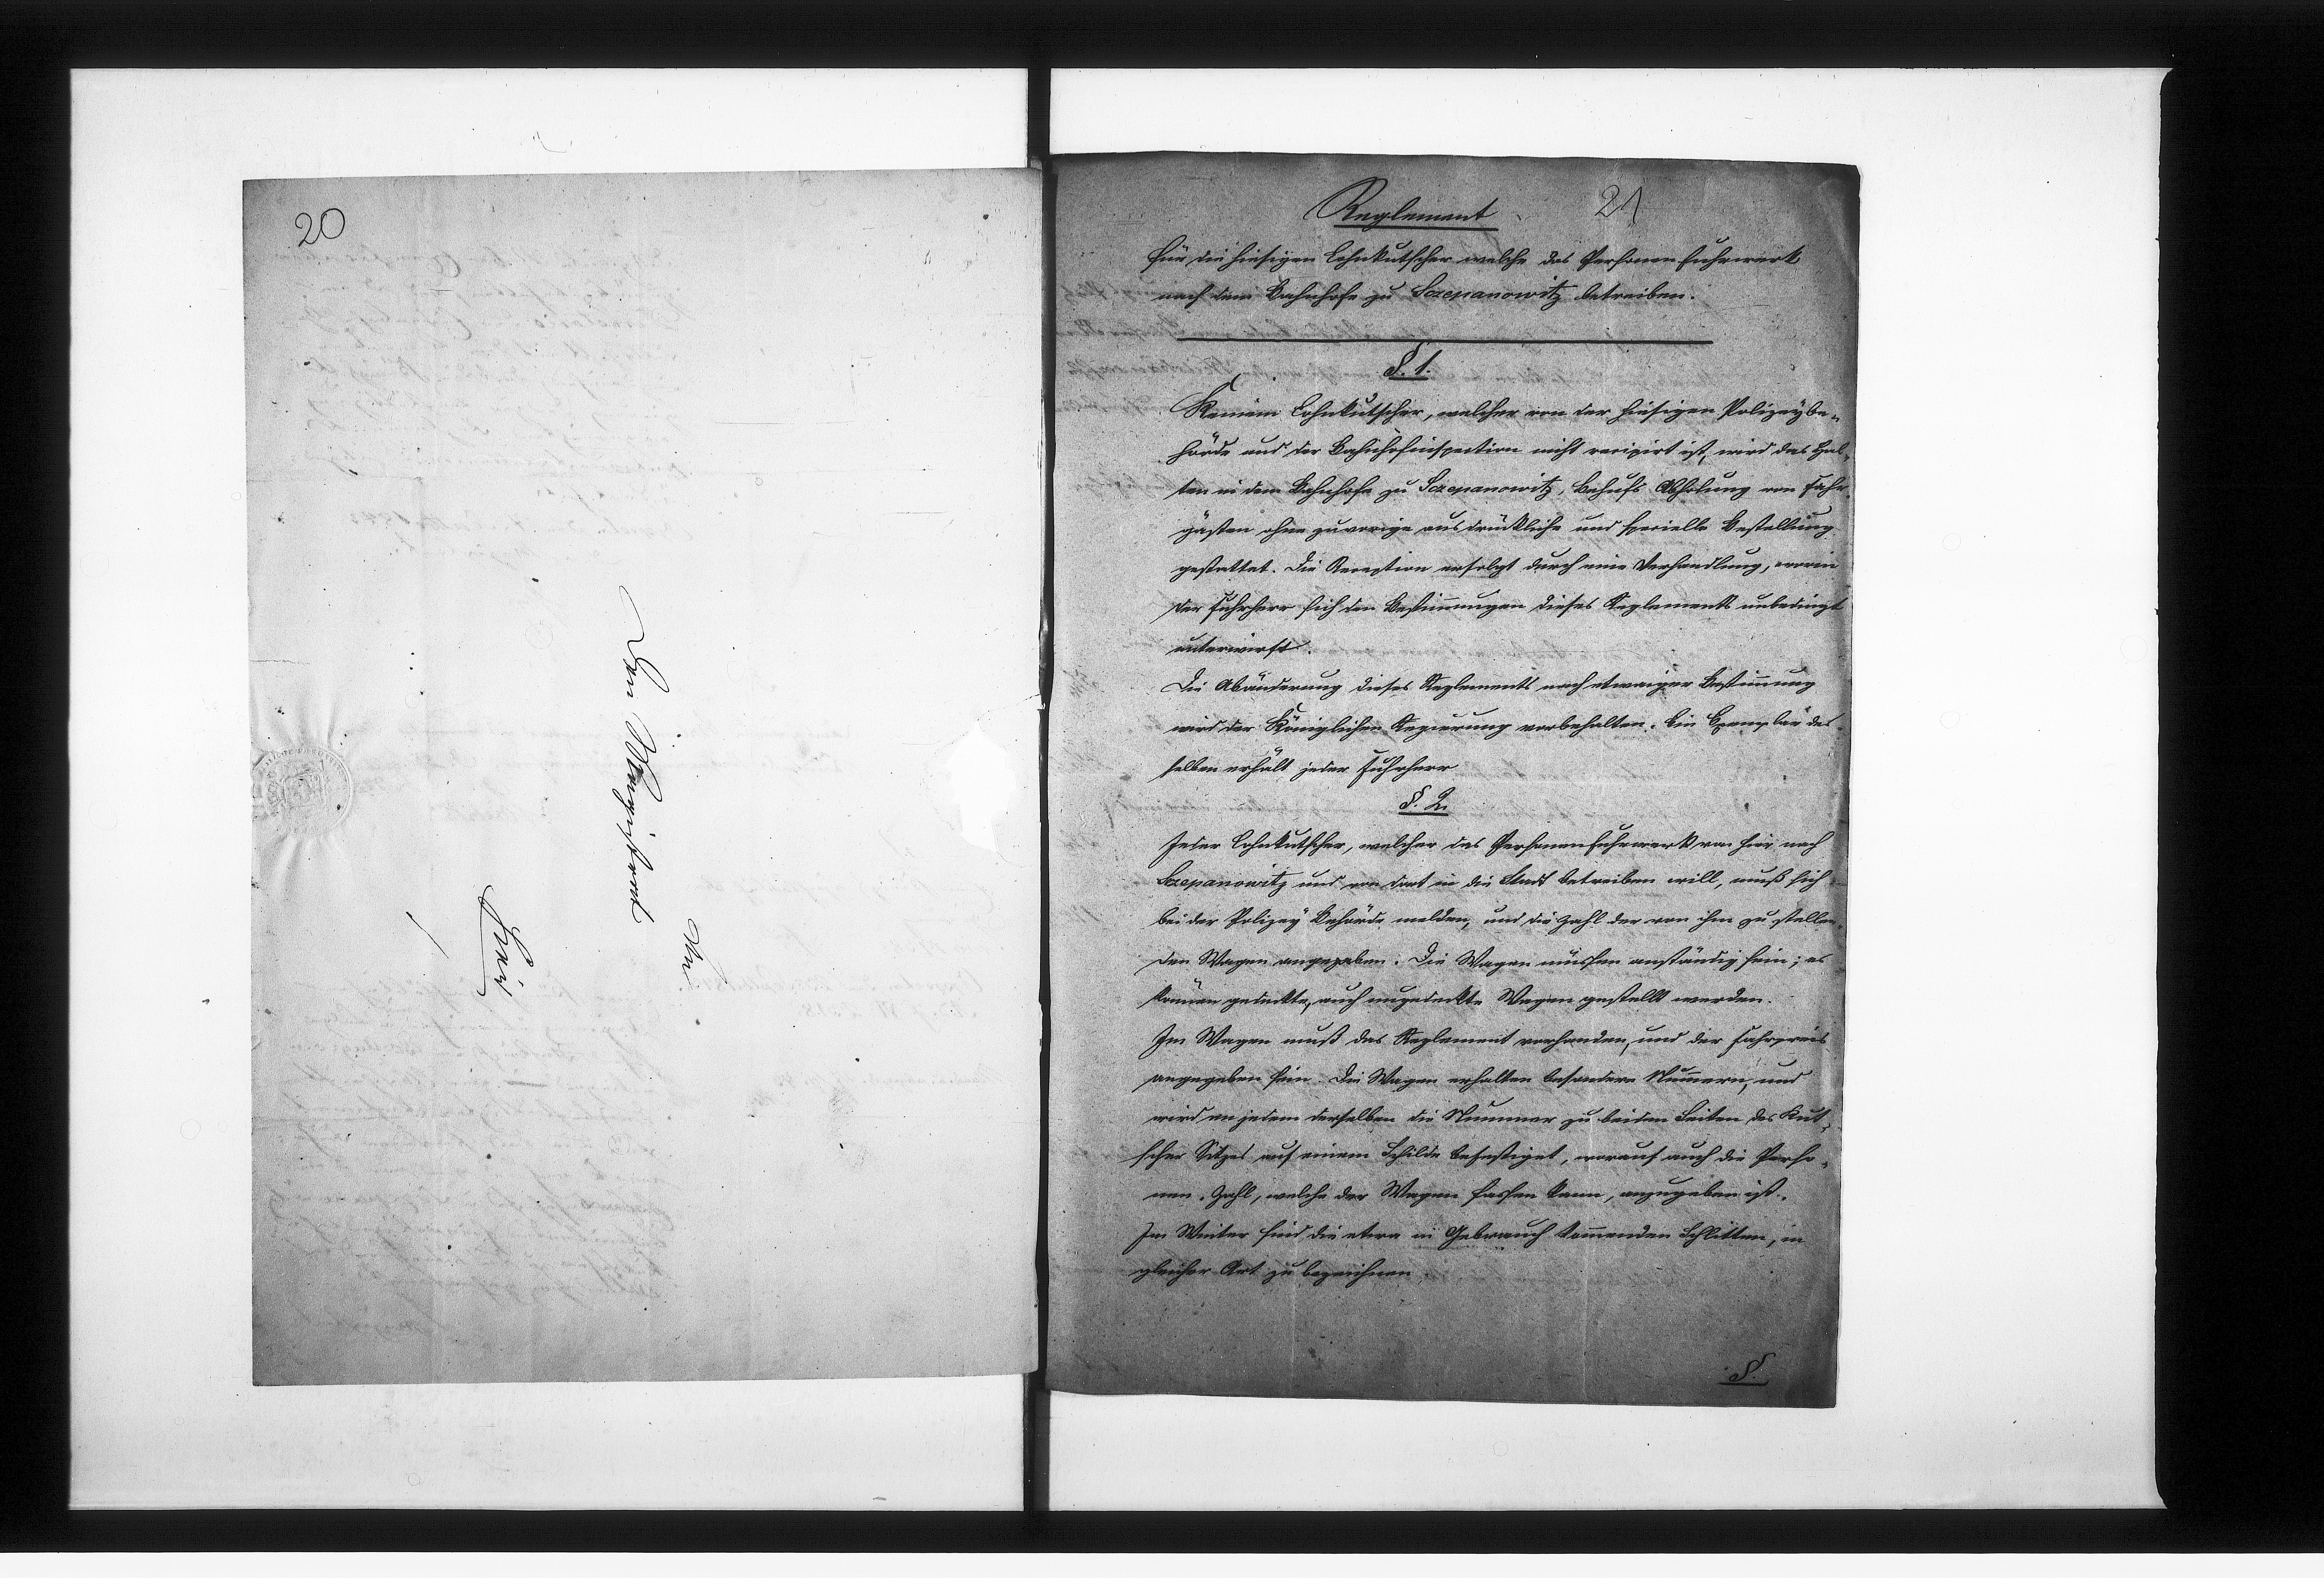 20
An
den Magistrat
hier
21
Reglement
für die hiesigen Lohnkutscher welche das Personenfuhrwerk
nach dem Bahnhofe zu Sczepanowitz betreiben.
§. 1.
Keinem Lohnkutscher, welcher von der hiesigen Polizeybe-
hörde und der Bahnhofinspection nicht recipirt ist, wird das Hal-
ten in dem Bahnhofe zu Sczepanowitz, behufs Abholung von Fahr-
gästen ohne zuvorige ausdrückliche und specielle Bestellung
gestattet. Die Reception erfolgt durch eine Verhandlung, worin
der Fuhrherr sich den Bestimmungen dieses Reglements unbedingt
unterwirft.
Die Abänderung dieses Reglements nach etwaiger Bestimmung
wird der Königlichen Regierung vorbehalten. Ein Exemplar des-
selben erhält jeder Fuhrherr
§. 2.
Jeder Lohnkutscher, welcher das Personenfuhrwerk von hier nach
Sczepanowitz und von dort in die Stadt betreiben will, muß sich
bei der Polizey Behörde melden, und die Zahl der von ihm zu stellen-
den Wagen angegeben. Die Wagen müssen anständig sein; es
können gedeckte, auch ungedeckte Wagen gestellt werden.
Im Wagen muß das Reglement vorhanden, und der Fahrpreis
angegeben sein. Die Wagen erhalten besondere Nummern, und
wird an jedem derselben die Nummer zu beiden Seiten des Kut-
scher Sitzes auf einem Schilde befestiget, worauf auch die Perso-
nen-Zahl, welche der Wagen fassen kann, anzugeben ist.
Im Winter sind die etwa in Gebrauch kommenden Schlitten, in
gleicher Art zu bezeichnen.
§.